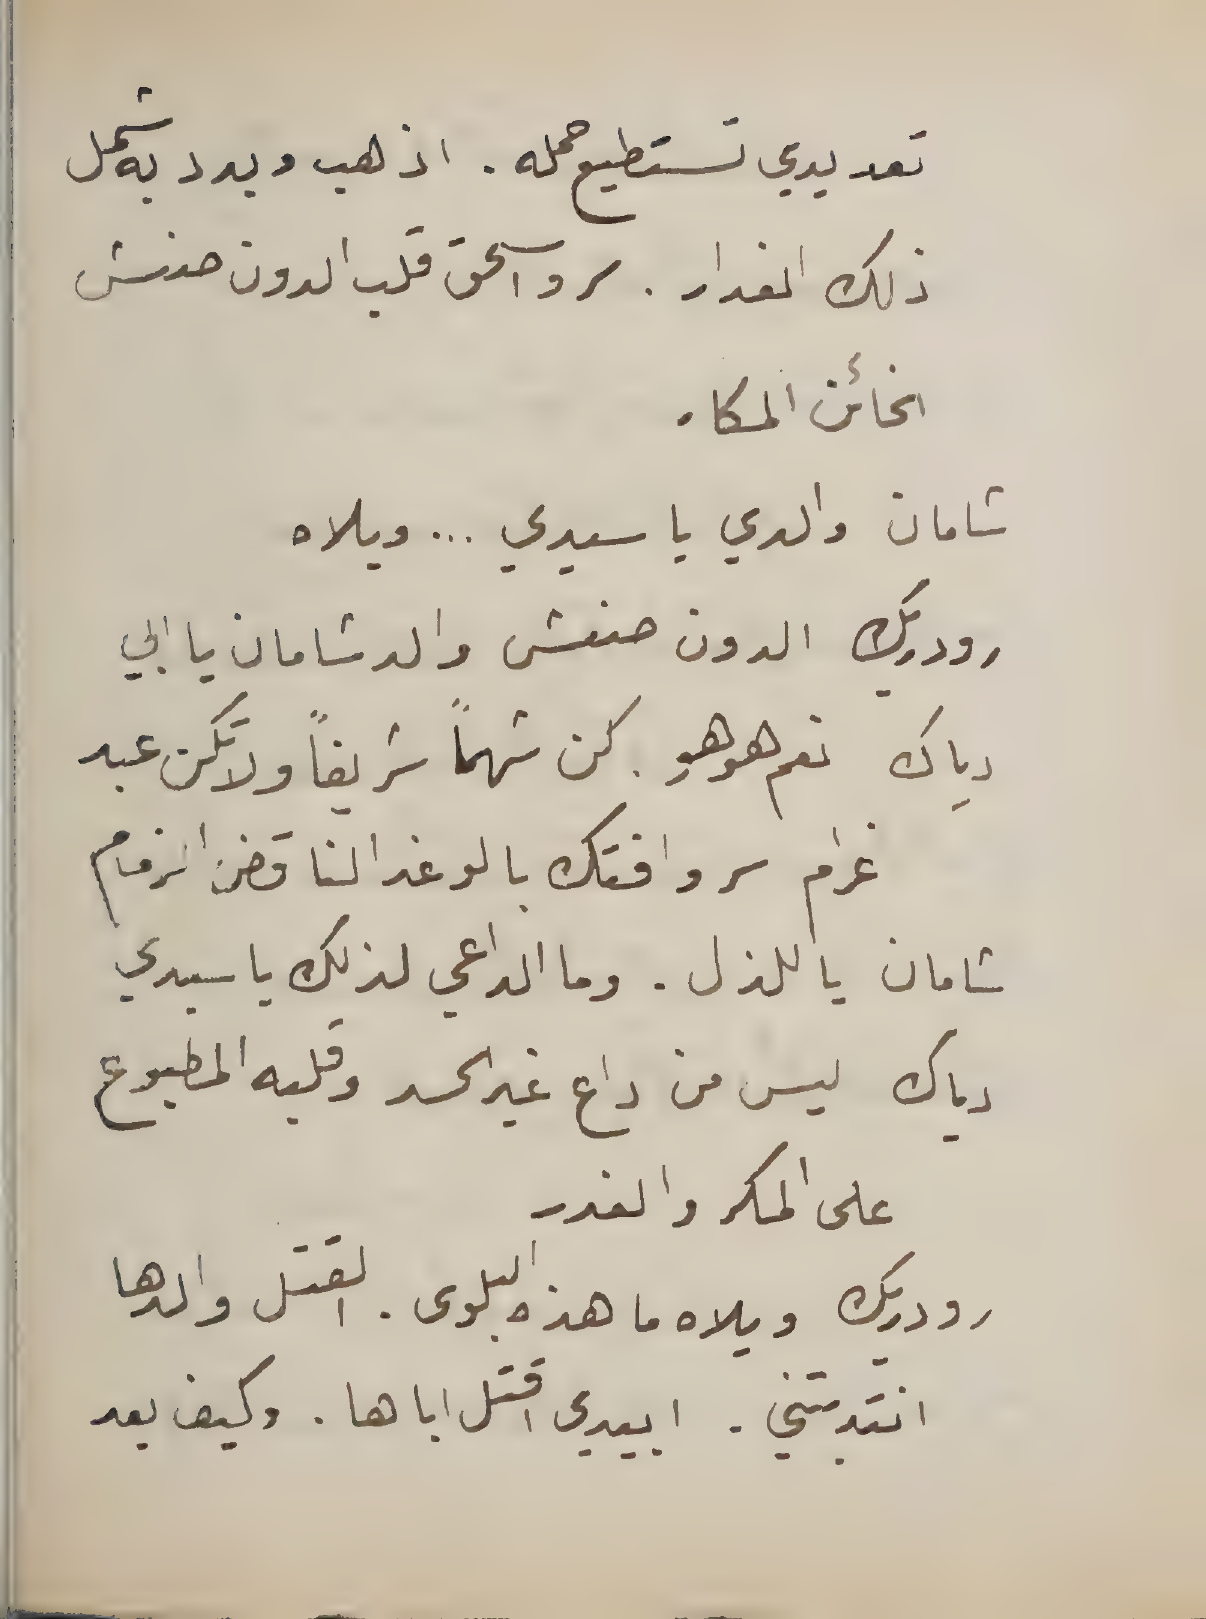 تعد يدي تستطيع حمله . اذهب وبدد به شمل
ذلك الغدار . سر واسحق قلب الدون صنعش
الخائن المكار
شامان والدي يا سيدي ... ويلاه
رودريك الدون صنعش والد شامان يا ابي
دياك نعم هو هو . كن شهماً شريفاً ولا تكن عبد
غرام سر وافتك بالوغد الناقض الزمام
شامان يا للذل . وما الداعي لذلك يا سيدي
دياك ليس من داع غير الحسد وقلبه المطبوع
على المكر والغدر
رودريك ويلاه ما هذه البلوى . القتل والدها
انتدبتني . ابيدي اقتل اباها . وكيف بعد